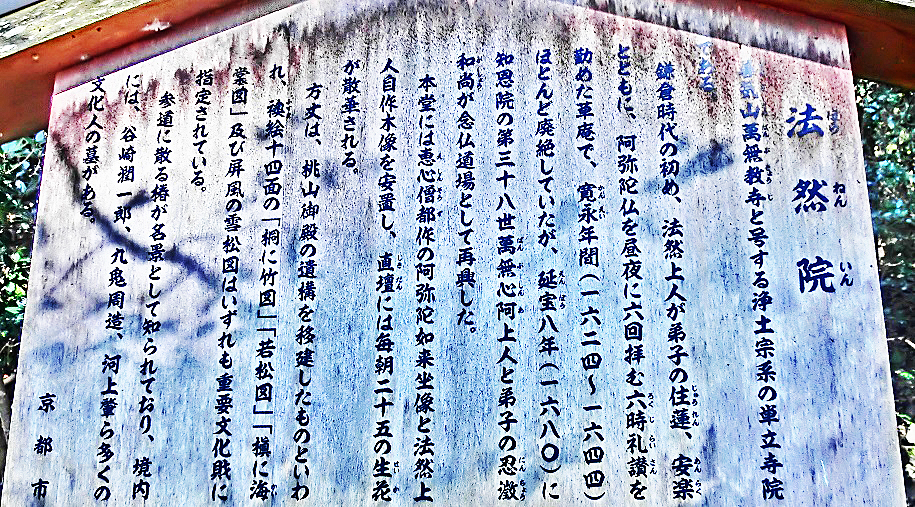 法然院
善気山萬無教寺と号する浄土宗系の単立寺院
である。
鎌倉時代の初め、法然上人が弟子の住蓮、安楽
とともに、阿弥陀仏を昼夜に六回拝む六時礼讃を
勤めた草庵で、寛永年間(一六二四~一六四四)
ほとんど廃絶していたが、延宝八年(一六八〇)に
知恩院の第三十八世萬無心阿上人と弟子の忍澂
和尚が念仏道場として再興した。
本堂には恵心僧都作の阿弥陀如来坐像と法然上
人自作木像を安置し、直壇には毎朝二十五の生花
が散華される。
方丈は、桃山御殿の遺構を移建したものといわ
れ、襖絵十四面の「桐に竹図」「若松図」「槇に海
棠図」及び屏風の雪松図はいずれも重要文化財に
指定されている。
参道に散る椿が名景として知られており、境内
には、谷崎潤一郎、九鬼周造、河上肇ら多くの
文化人の墓がある。
京都市